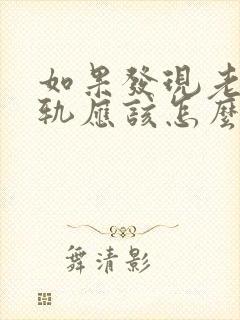 如果發現老
軌應該怎麼
舞清影